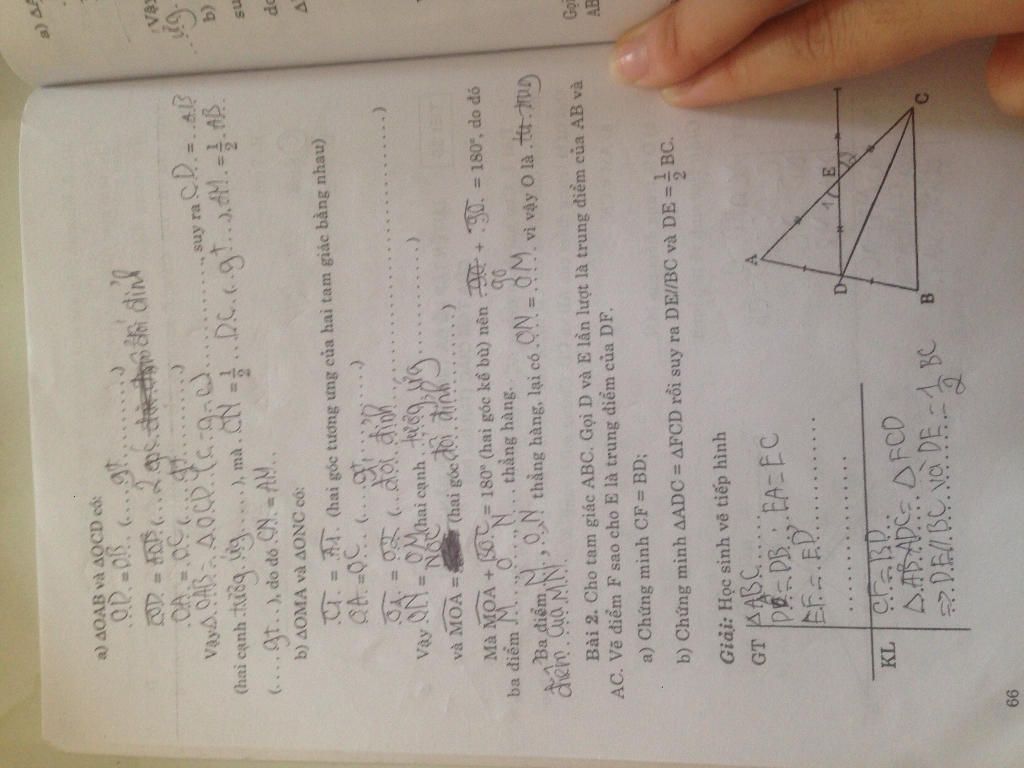 a) ΔOAB và ΔOCD có:
OD = OB (...gt...)
OA = OC (...gt...)
Vậy ΔOAB = ΔOCD (c.g.c), suy ra CD = AB
(hai cạnh tương ứng), mà CN = 1/2 DC (.gt...), AM = 1/2 AB
(...gt...), do đó CN = AM
b) ΔOMA và ΔONC có:
(hai góc tương ứng của hai tam giác bằng nhau)
OA = OC (...gt...)
Vậy ON = OM (hai cạnh tương ứng)
và MOA = NOC (hai góc đối đỉnh)
Mà MOA + = 180° (hai góc kề bù) nên 90 + 90 = 180°, do đó
ba điểm M, O, N thẳng hàng.
Ba điểm M, O, N thẳng hàng, lại có ON = OM vì vậy O là trung
điểm của MN.
Bài 2. Cho tam giác ABC. Gọi D và E lần lượt là trung điểm của AB và
AC. Vẽ điểm F sao cho E là trung điểm của DF.
a) Chứng minh CF = BD;
b) Chứng minh ΔADC = ΔFCD rồi suy ra DE//BC và DE = 1/2 BC.
Giải: Học sinh vẽ tiếp hình
GT ΔABC
DA = DB, EA = EC
EF = ED
KL CF = BD
Δ ADC = Δ FCD
=> DE//BC và DE = 1/2 BC
A
D
E
1
2
B
C
66
a)
Vậy
b)
Gọi
AB